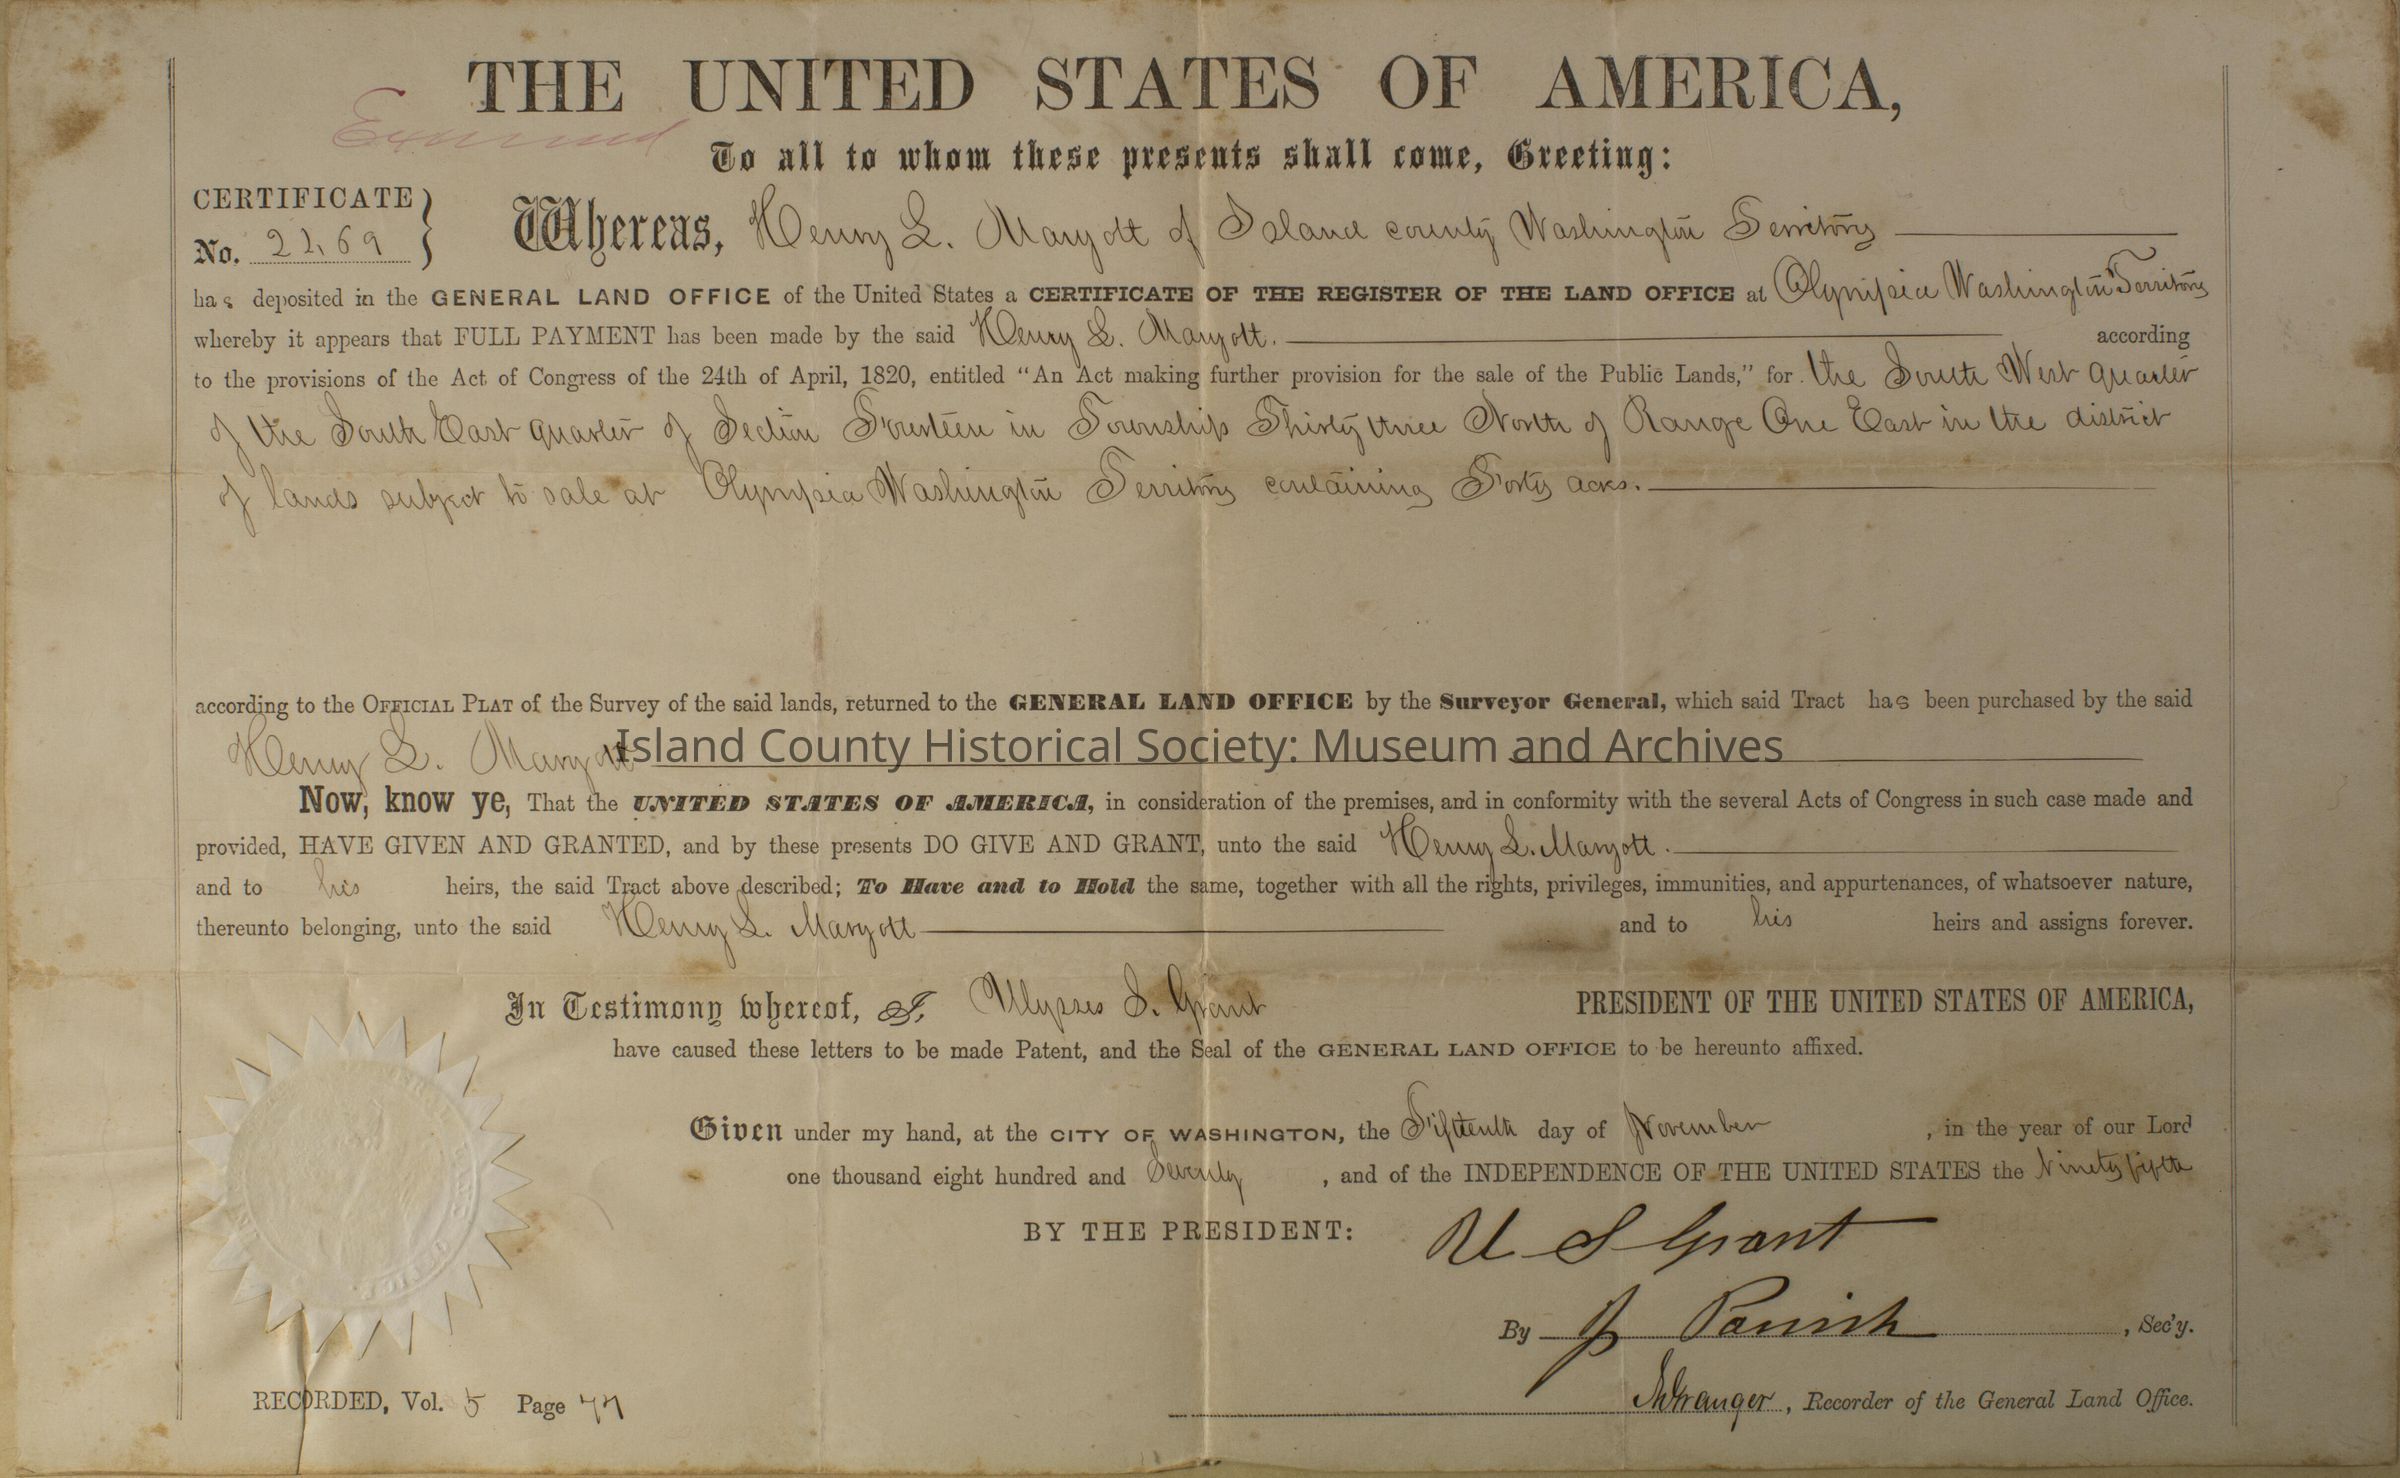 THE UNITED STATES OF AMERICA,
Examined
To all to whom these presents shall come, Greeting:
CERTIFICATE
No. 2269
Whereas, Henry L. Maryott of Island county Washington Territory
has deposited in the GENERAL LAND OFFICE of the United States a CERTIFICATE OF THE REGISTER OF THE LAND OFFICE at Olympia Washington Territory
whereby it appears that FULL PAYMENT has been made by the said Henry L. Maryott. according
to the provisions of the Act of Congress of the 24th of April, 1820, entitled “An Act making further provision for the sale of the Public Lands,” for the South West quarter
of the South East quarter of Section Fourteen in Township Thirty three North of Range One East in the district
of lands subject to sale at Olympia Washington Territory containing Forty acres.
according to the OFFICIAL PLAT of the Survey of the said lands, returned to the GENERAL LAND OFFICE by the Surveyor General, which said Tract has been purchased by the said
Henry L. Maryott
Island County Historical Society: Museum and Archives
Now, know ye, That the UNITED STATES OF AMERICA, in consideration of the premises, and in conformity with the several Acts of Congress in such case made and
provided, HAVE GIVEN AND GRANTED, and by these presents DO GIVE AND GRANT, unto the said Henry L. Maryott.
and to his heirs, the said Tract above described; To Have and to Hold the same, together with all the rights, privileges, immunities, and appurtenances, of whatsoever nature,
thereunto belonging, unto the said Henry L. Maryott and to his heirs and assigns forever.
In Testimony whereof, I, Ulysses S. Grant PRESIDENT OF THE UNITED STATES OF AMERICA,
have caused these letters to be made Patent, and the Seal of the GENERAL LAND OFFICE to be hereunto affixed.
Given under my hand, at the CITY OF WASHINGTON, the Fifteenth day of November, in the year of our Lord
one thousand eight hundred and Seventy, and of the INDEPENDENCE OF THE UNITED STATES the Ninety fifth
BY THE PRESIDENT: U S Grant
By J Parrish, Sec'y.
Granger, Recorder of the General Land Office.
RECORDED, Vol. 5 Page 77